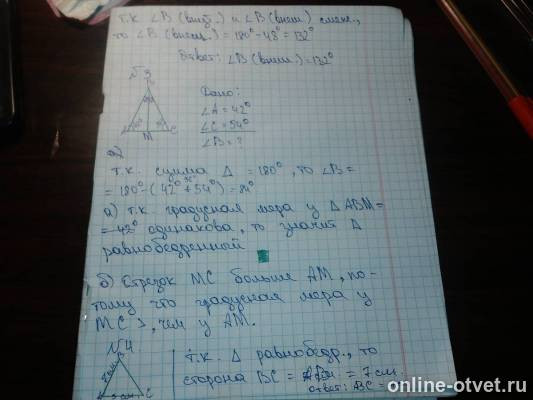 т.к. ∠В (внут.) и ∠В (внеш.) смеж.,
то ∠В (внеш.) = 180° - 48° = 132°
Ответ: ∠В (внеш.) = 132°
№3
Дано:
∠А = 42°
∠С = 54°
∠В = ?
М С
т.к. сумма Δ = 180°, то ∠В =
= 180° - (42° + 54°) = 84°
а) т.к. градусная мера у Δ АВМ =
= 42° одинакова, то значит Δ
равнобедренный
б) Отрезок МС больше АМ, по-
тому что градусная мера у
МС >, чем у АМ.
№4
т.к. Δ равнобедр., то
сторона ВС = = 7 см.
ответ: ВС =
С
online-otvet.ru